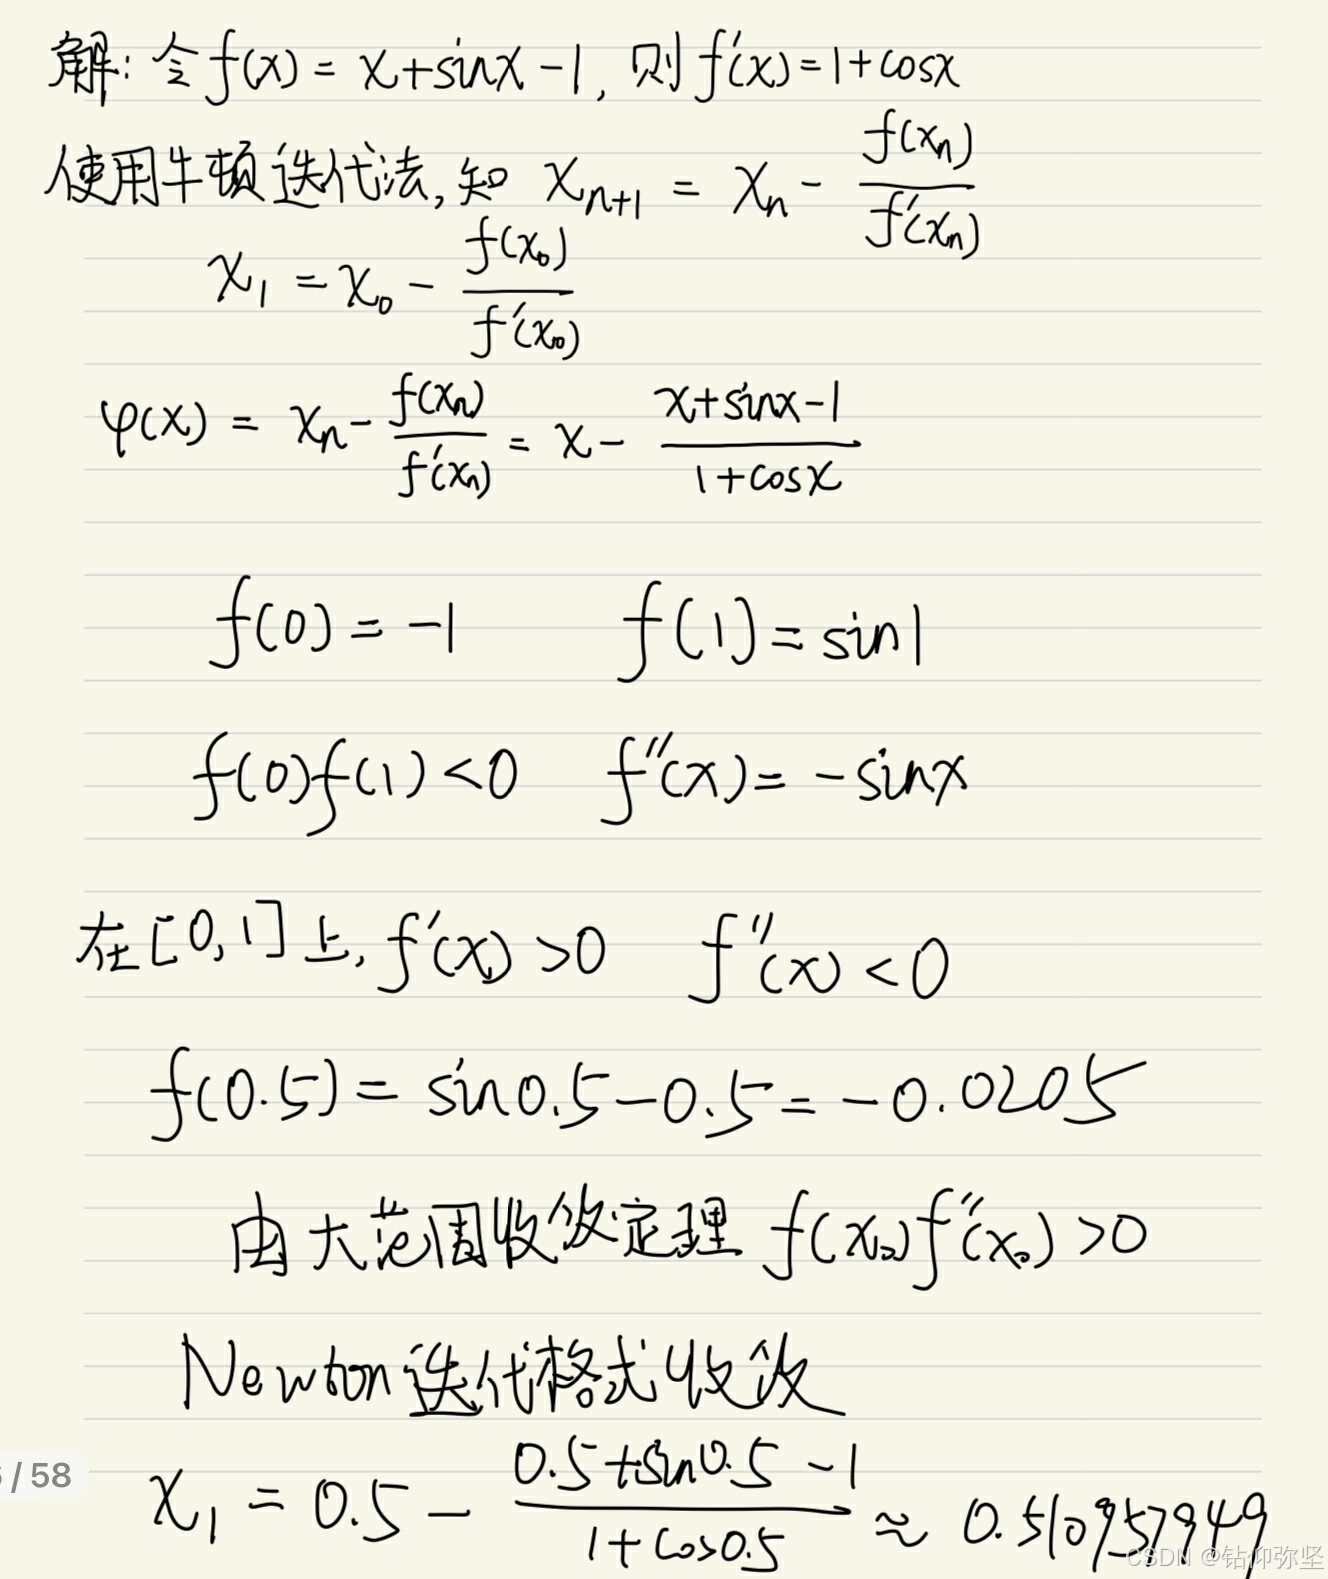 解: 令 f(x) = x+sinx-1, 则 f'(x)=1+cosx
使用牛顿迭代法, 知 xₙ₊₁ = xₙ - f(xₙ)/f'(xₙ)
x₁ = x₀ - f(x₀)/f'(x₀)
φ(x) = xₙ - f(xₙ)/f'(xₙ) = x - (x+sinx-1)/(1+cosx)
f(0) = -1 f(1) = sin1
f(0)f(1)<0 f''(x) = -sinx
在[0,1]上, f'(x)>0 f''(x)<0
f(0.5) = sin0.5-0.5 = -0.0205
由大范围收敛定理 f(x₀)f''(x₀)>0
Newton迭代格式收敛
/58
x₁ = 0.5 - (0.5+sin0.5-1)/(1+cos0.5) ≈ 0.510957949
CSDN @钻仰弥坚